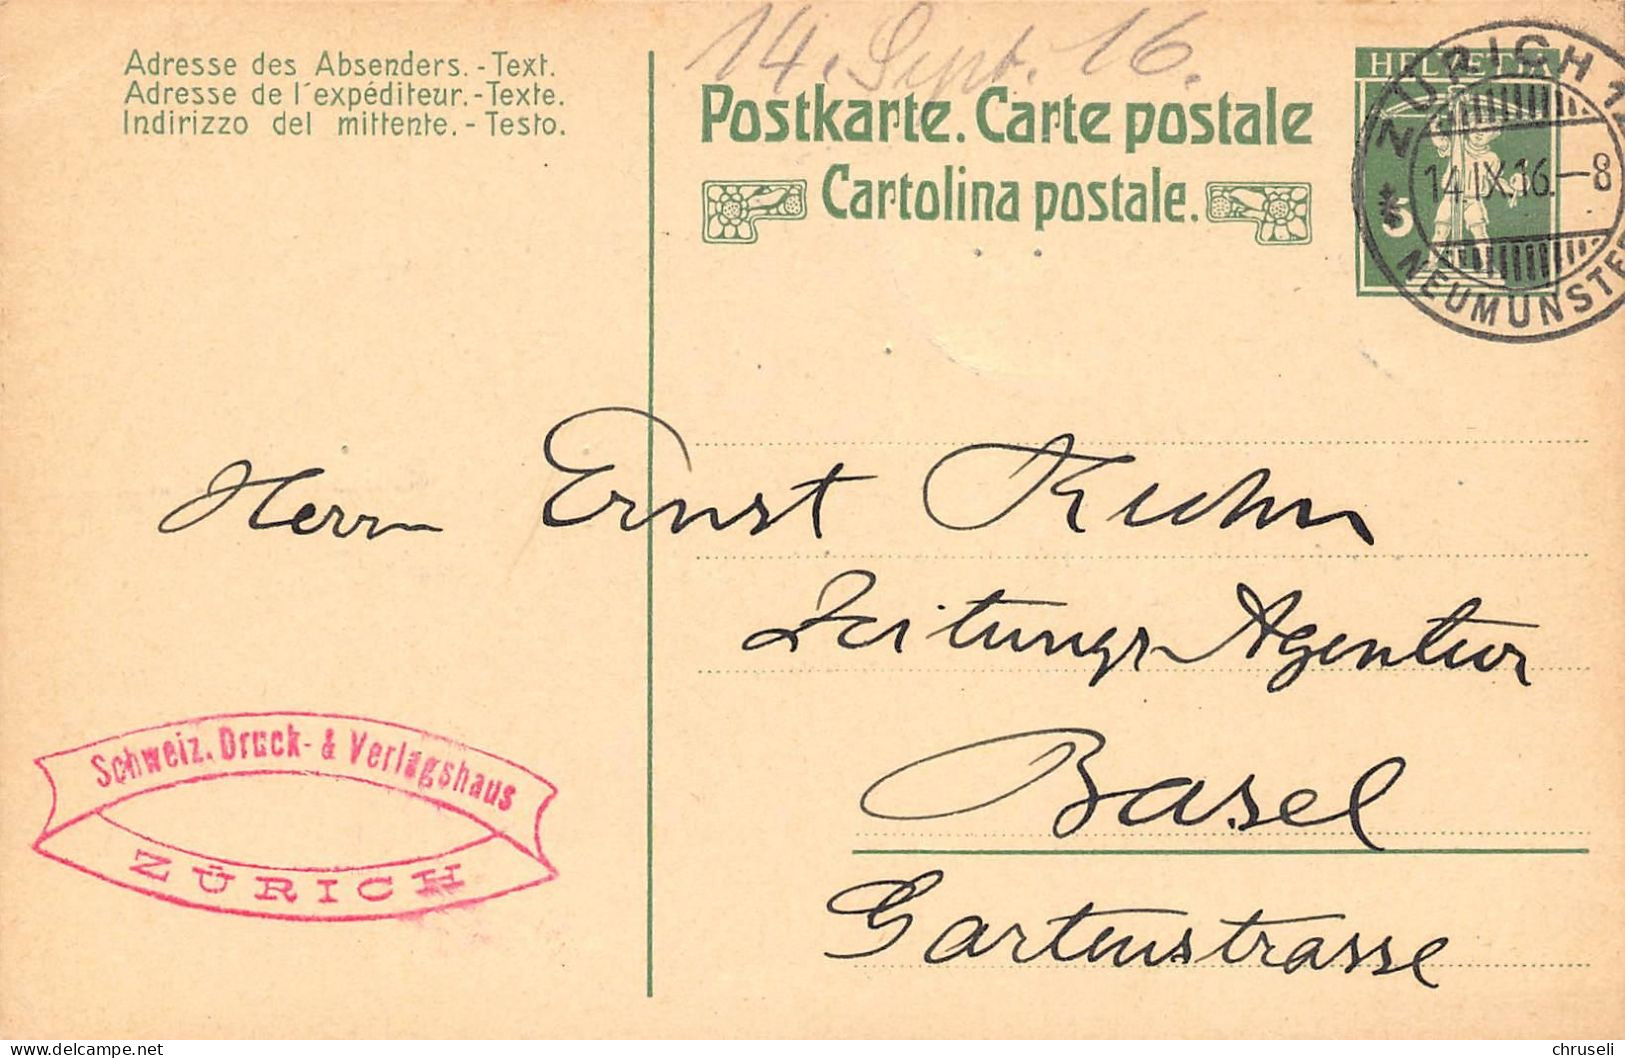 14. Sept. 16.
Adresse des Absenders. - Text.
Adresse de l'expéditeur. - Texte.
Indirizzo del mittente. - Testo.
Postkarte. Carte postale
Cartolina postale.
HELVETIA
5
ZÜRICH 12
14.IX.16.–8
NEUMÜNSTE
Herrn Ernst Kuhn
Zeitungs-Agentur
Basel
Gartenstrasse
Schweiz. Druck- & Verlagshaus
ZÜRICH
delcampe.net
chruseli